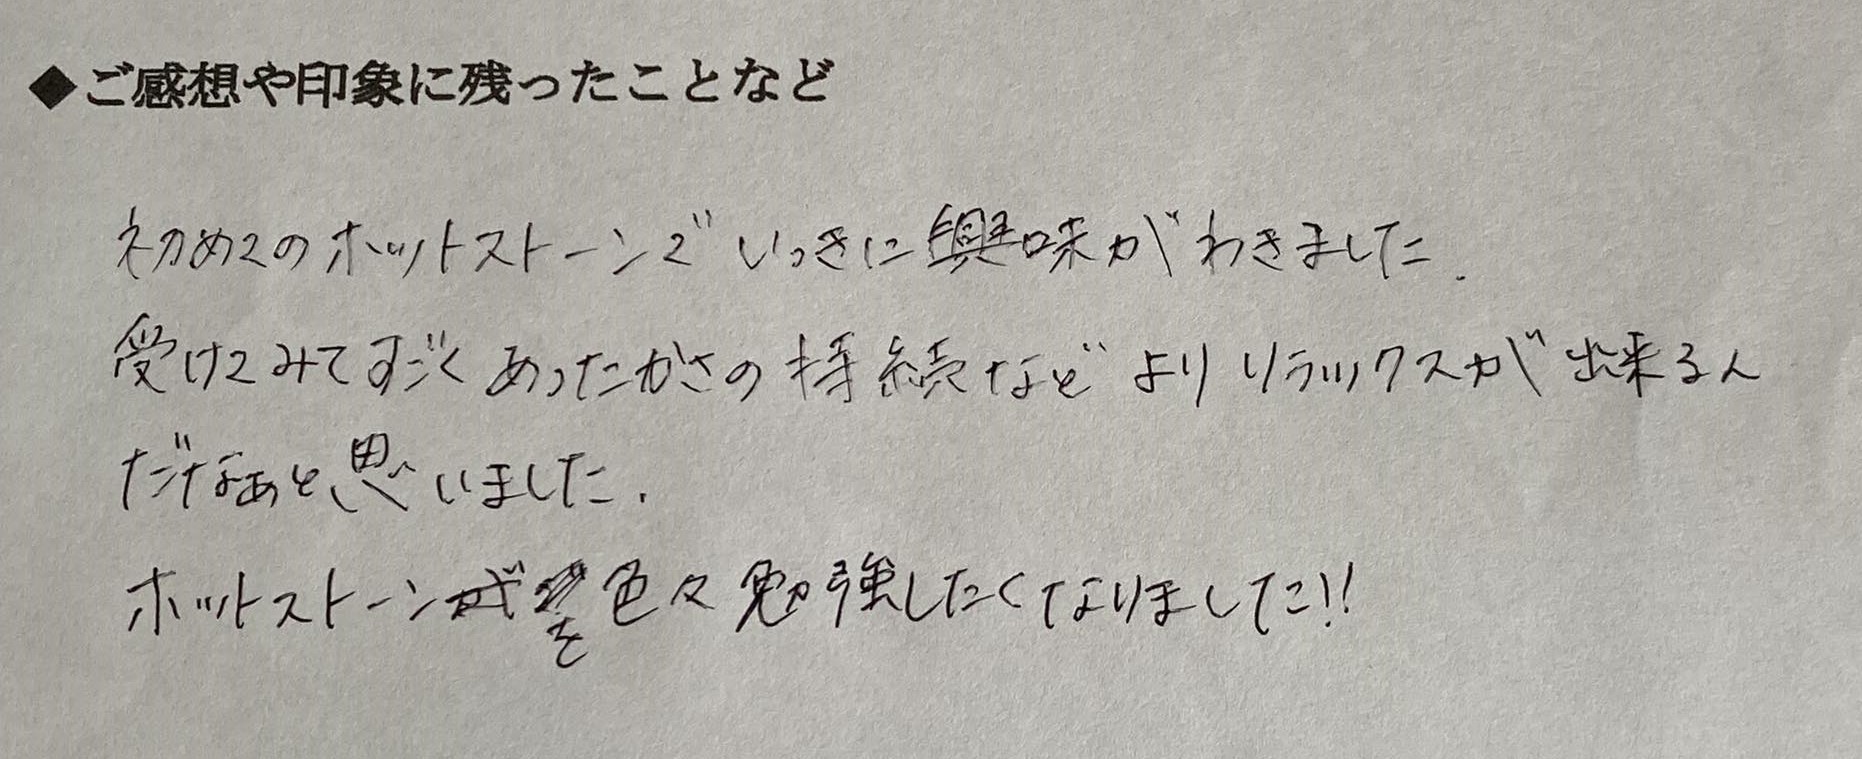 ◆ご感想や印象に残ったことなど
初めてのホットストーンでいっきに興味がわきました.
受けてみてすごくあったかさの持続などよりリラックスが出来るん
だなぁと思いました.
ホットストーンを色々勉強したくなりました!!